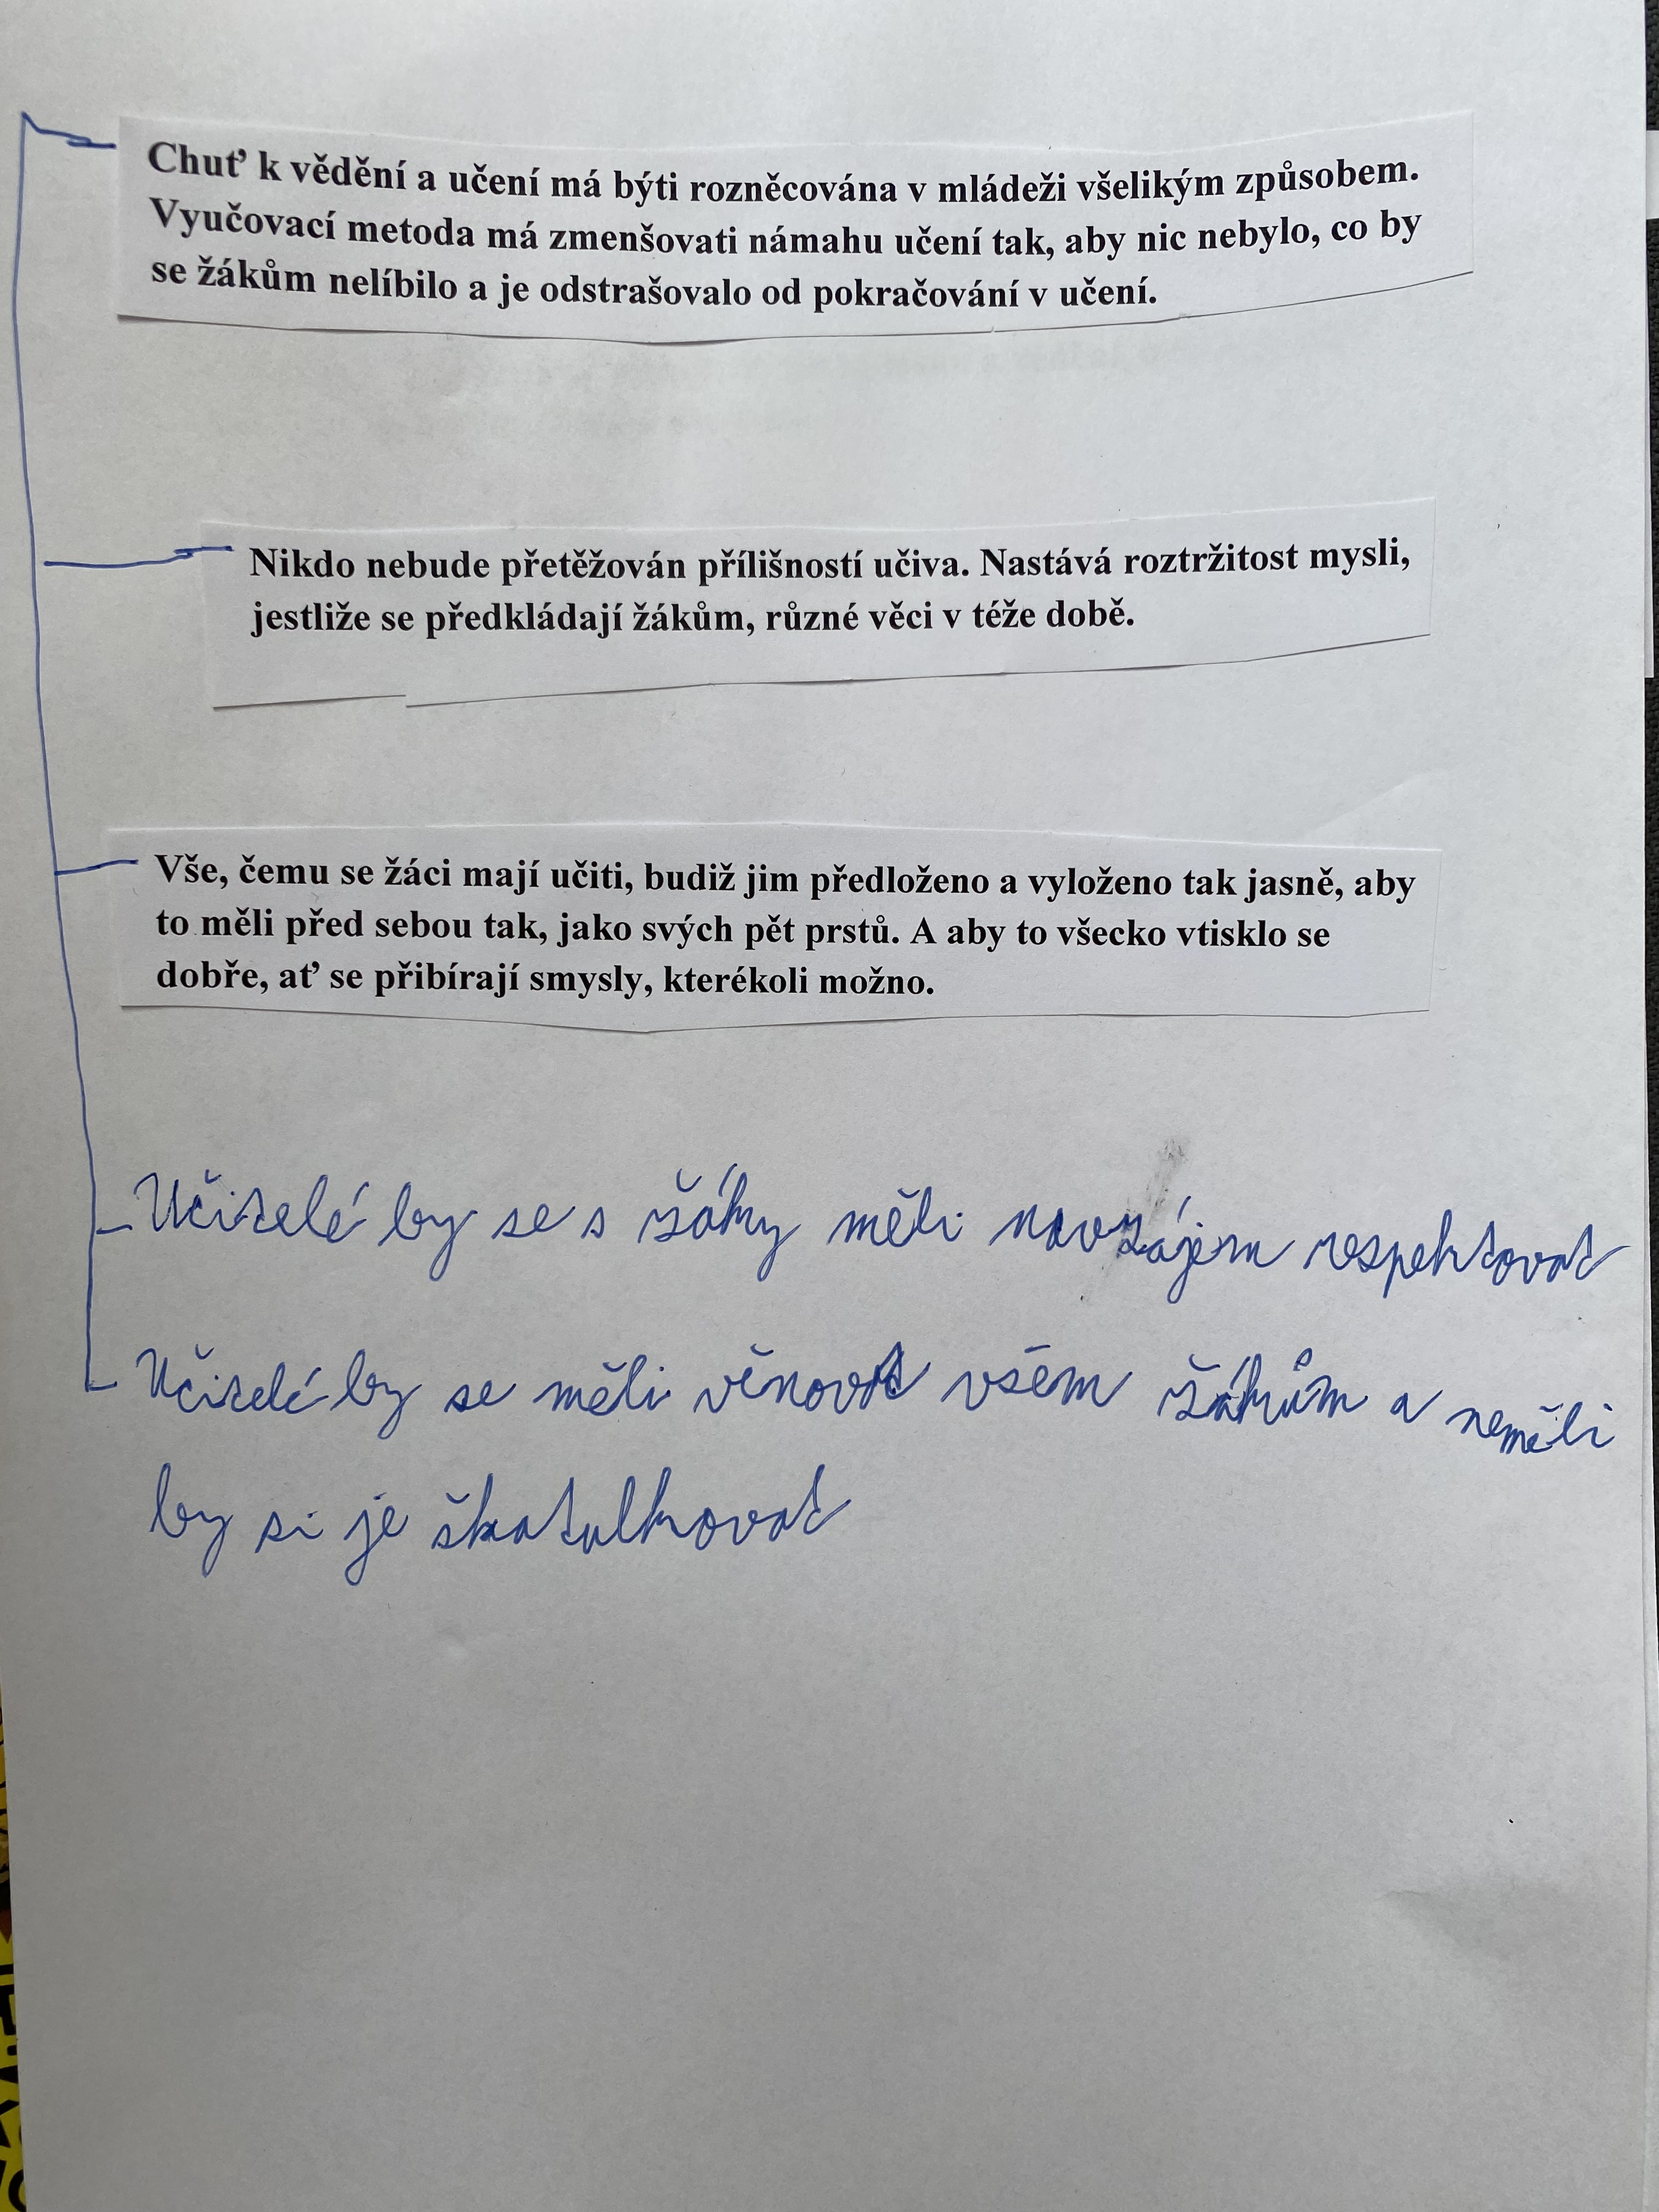 Chuť k vědění a učení má býti rozněcována v mládeži všelikým způsobem.
Vyučovací metoda má zmenšovati námahu učení tak, aby nic nebylo, co by
se žákům nelíbilo a je odstrašovalo od pokračování v učení.
Nikdo nebude přetěžován přílišností učiva. Nastává roztržitost mysli,
jestliže se předkládají žákům, různé věci v téže době.
Vše, čemu se žáci mají učiti, budiž jim předloženo a vyloženo tak jasně, aby
to měli před sebou tak, jako svých pět prstů. A aby to všecko vtisklo se
dobře, ať se přibírají smysly, kterékoli možno.
Učitelé by se s žáky měli navzájem respektovat
Učitelé by se měli věnovat všem žákům a neměli
by si je škatulkovat